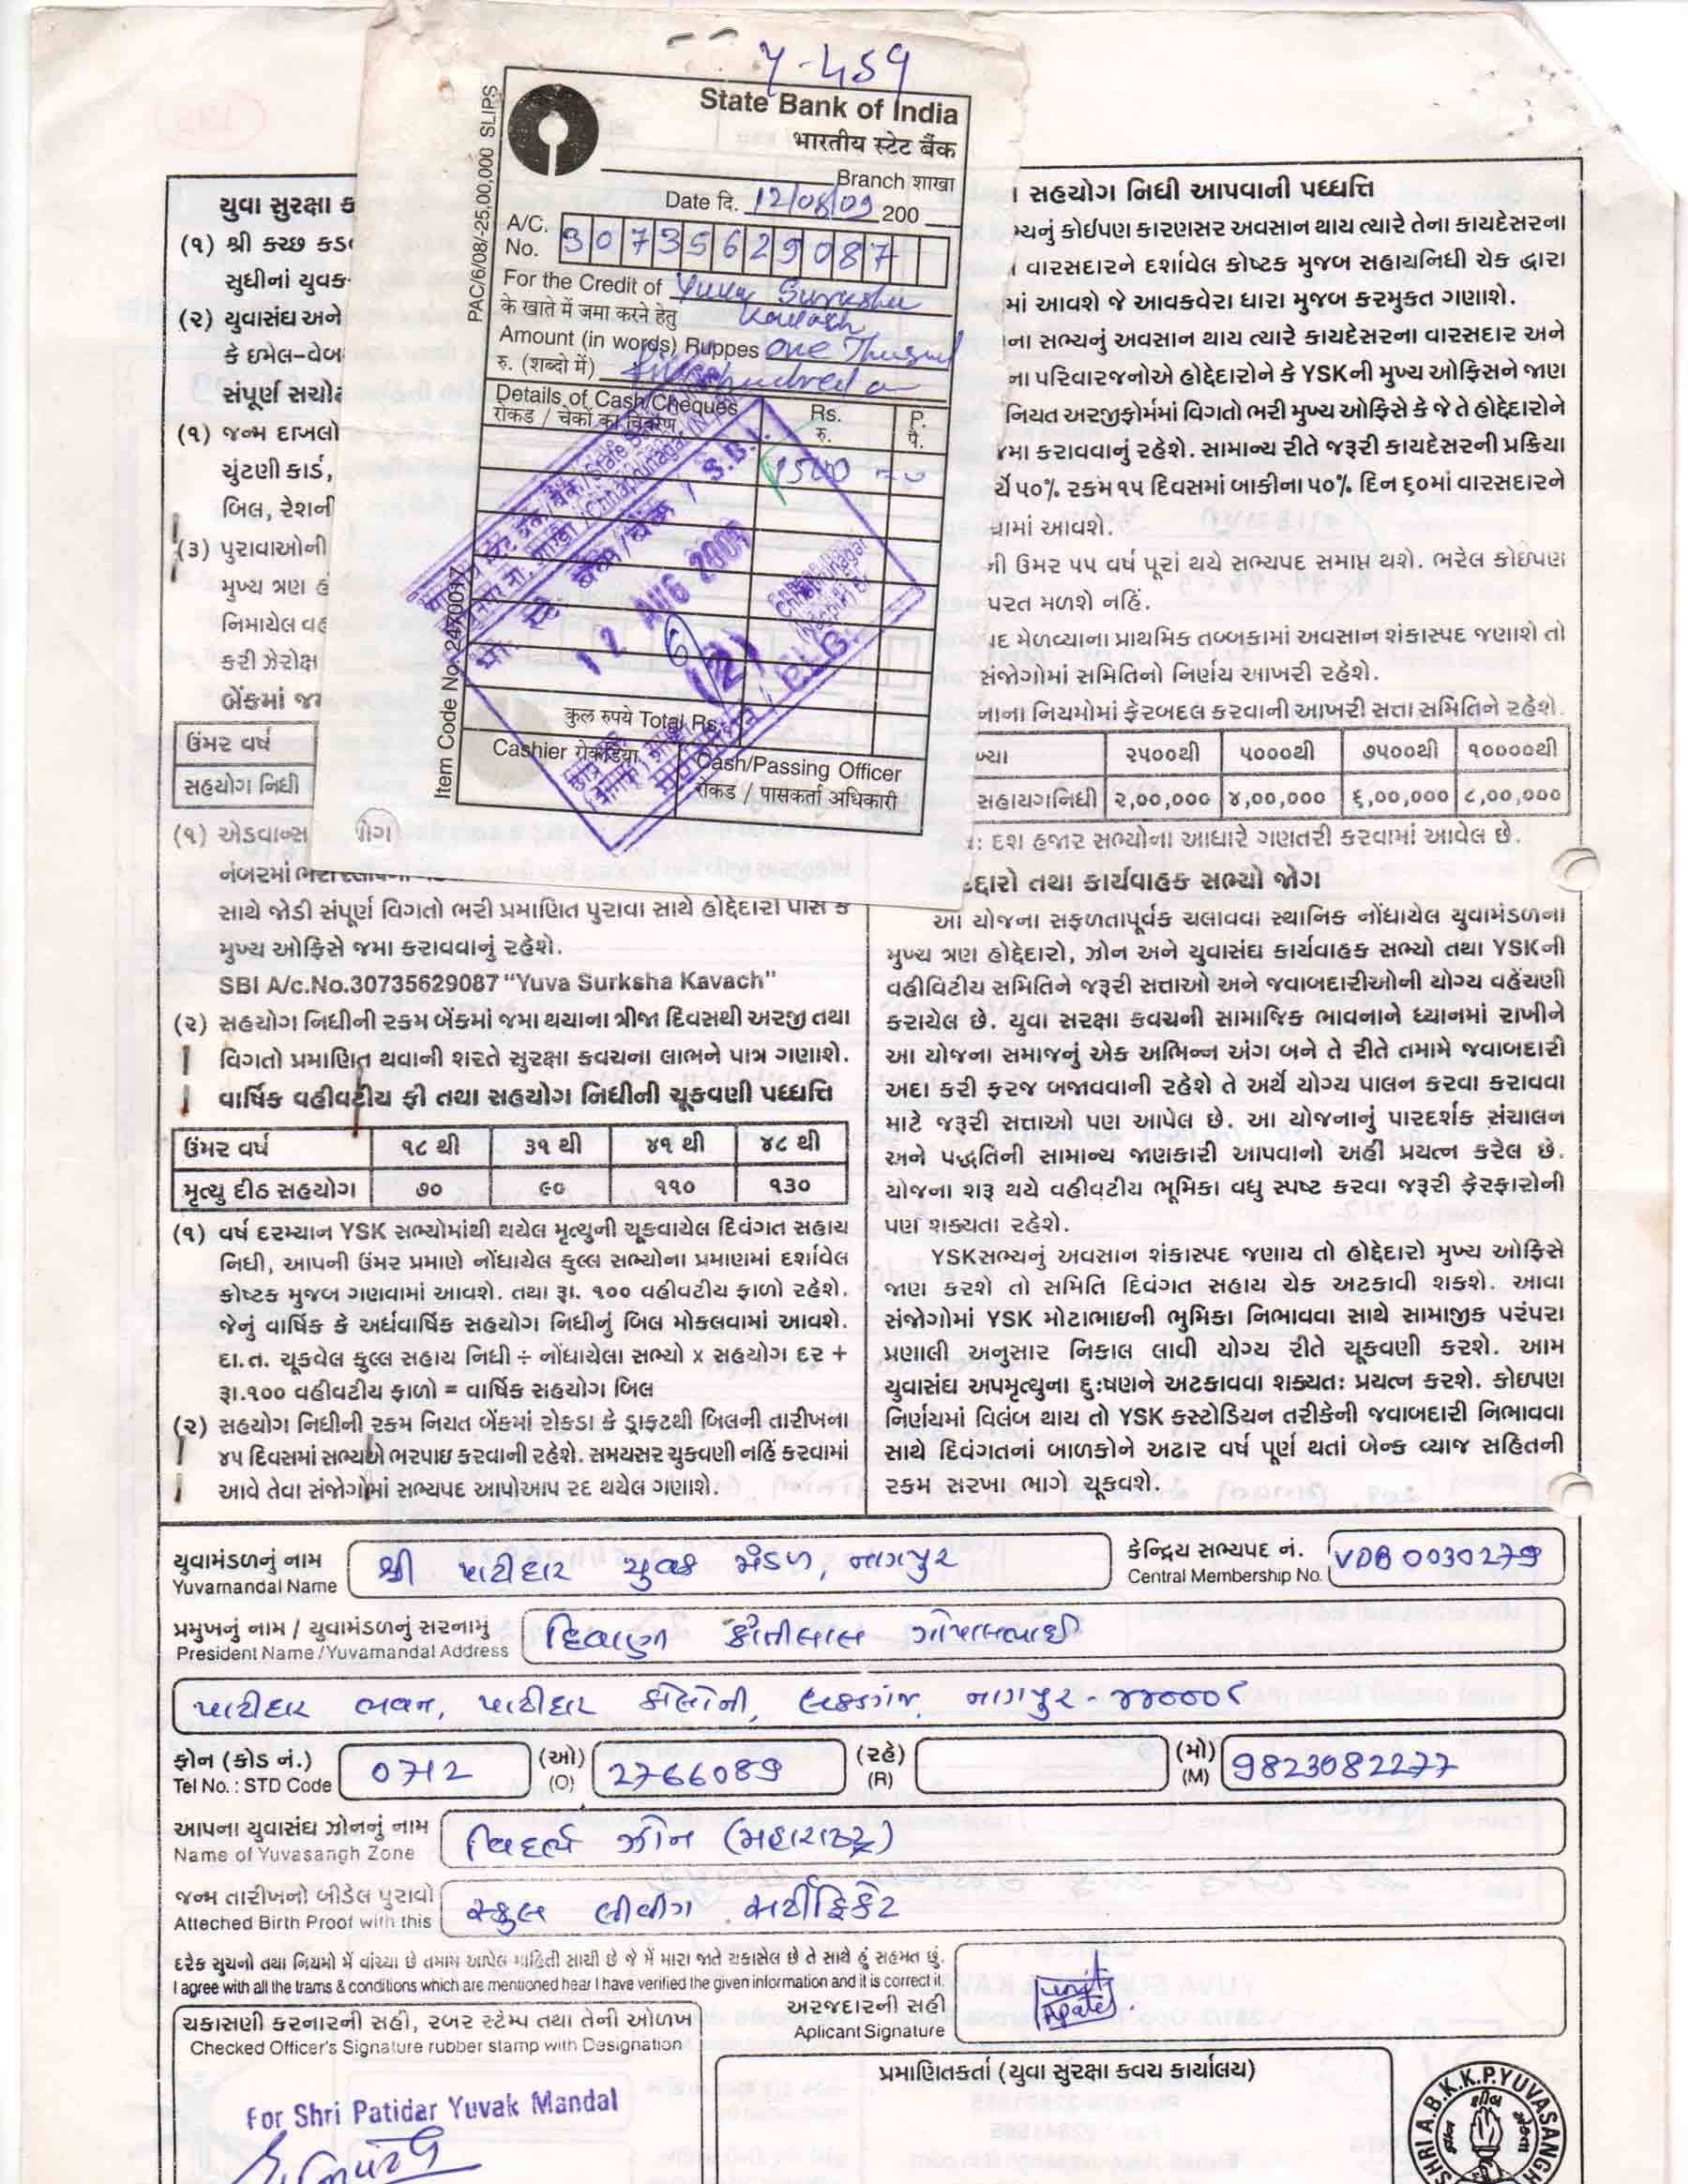 Y-459
State Bank of India
भारतीय स्टेट बैंक
Branch शाखा
Date दि. 12/08/09 200
A/C. No. 30735629087
For the Credit of Yuva Suraksha
के खाते में जमा करने हेतु Kavach
Amount (in words) Ruppes One Thousand
रु. (शब्दो में) five hundred
Details of Cash/Cheques Rs. P.
रोकड / चेकों का विवरण रु. पै.
1500
12 AUG 2009
कुल रुपये Total Rs.
Cashier रोकडिया Cash/Passing Officer
रोकड / पासकर्ता अधिकारी
PAC/6/08/-25,00,000 SLIPS
Item Code No.:2470017
યુવા સુરક્ષા ક
(૧) શ્રી કચ્છ કડ
સુધીનાં યુવક-
(૨) યુવાસંઘ અને
કે ઇમેલ-વેબ
સંપૂર્ણ સચોટ
(૧) જન્મ દાખલો
ચુંટણી કાર્ડ,
બિલ, રેશની
(૩) પુરાવાઓની
મુખ્ય ત્રણ હ
નિમાયેલ વહ
કરી ઝેરોક્ષ
બેંકમાં જમ
ઉંમર વર્ષ
સહયોગ નિધી
(૧) એડવાન્સ યોગ
નંબરમાં
સાથે જોડી સંપૂર્ણ વિગતો ભરી પ્રમાણિત પુરાવા સાથે હોદ્દેદારો પાસે કે
મુખ્ય ઓફિસે જમા કરાવવાનું રહેશે.
SBI A/c.No.30735629087 “Yuva Surksha Kavach”
(૨) સહયોગ નિધીની રકમ બેંકમાં જમા થયાના ત્રીજા દિવસથી અરજી તથા
વિગતો પ્રમાણિત થવાની શરતે સુરક્ષા કવચના લાભને પાત્ર ગણાશે.
વાર્ષિક વહીવટીય ફી તથા સહયોગ નિધીની ચૂકવણી પધ્ધતિ
ઉંમર વર્ષ ૧૮ થી ૩૧ થી ૪૧ થી ૪૮ થી
મૃત્યુ દીઠ સહયોગ ૭૦ ૯૦ ૧૧૦ ૧૩૦
(૧) વર્ષ દરમ્યાન YSK સભ્યોમાંથી થયેલ મૃત્યુની ચૂકવાયેલ દિવંગત સહાય
નિધી, આપની ઉંમર પ્રમાણે નોંધાયેલ કુલ્લ સભ્યોના પ્રમાણમાં દર્શાવેલ
કોષ્ટક મુજબ ગણવામાં આવશે. તથા રૂા. ૧૦૦ વહીવટીય ફાળો રહેશે.
જેનું વાર્ષિક કે અર્ધવાર્ષિક સહયોગ નિધીનું બિલ મોકલવામાં આવશે.
દા.ત. ચૂકવેલ કુલ્લ સહાય નિધી ÷ નોંધાયેલા સભ્યો x સહયોગ દર +
રૂા.૧૦૦ વહીવટીય ફાળો = વાર્ષિક સહયોગ બિલ
(૨) સહયોગ નિધીની રકમ નિયત બેંકમાં રોકડા કે ડ્રાફટથી બિલની તારીખના
૪૫ દિવસમાં સભ્યએ ભરપાઇ કરવાની રહેશે. સમયસર ચુકવણી નહિં કરવામાં
આવે તેવા સંજોગોમાં સભ્યપદ આપોઆપ રદ થયેલ ગણાશે.
સહયોગ નિધી આપવાની પધ્ધતિ
ભ્યનું કોઈપણ કારણસર અવસાન થાય ત્યારે તેના કાયદેસરના
વારસદારને દર્શાવેલ કોષ્ટક મુજબ સહાયનિધી ચેક દ્વારા
માં આવશે જે આવકવેરા ધારા મુજબ કરમુકત ગણાશે.
ના સભ્યનું અવસાન થાય ત્યારે કાયદેસરના વારસદાર અને
ના પરિવારજનોએ હોદ્દેદારોને કે YSKની મુખ્ય ઓફિસને જાણ
નિયત અરજીફોર્મમાં વિગતો ભરી મુખ્ય ઓફિસે કે જે તે હોદ્દેદારોને
જમા કરાવવાનું રહેશે. સામાન્ય રીતે જરૂરી કાયદેસરની પ્રક્રિયા
ર્યે ૫૦% રકમ ૧૫ દિવસમાં બાકીના ૫૦% દિન ૬૦માં વારસદારને
વામાં આવશે.
ની ઉમર ૫૫ વર્ષ પૂરાં થયે સભ્યપદ સમાપ્ત થશે. ભરેલ કોઇપણ
પરત મળશે નહિં.
પદ મેળવ્યાના પ્રાથમિક તબ્બકામાં અવસાન શંકાસ્પદ જણાશે તો
સંજોગોમાં સમિતિનો નિર્ણય આખરી રહેશે.
નાના નિયમોમાં ફેરબદલ કરવાની આખરી સત્તા સમિતિને રહેશે.
ખ્યા ૨૫૦૦થી ૫૦૦૦થી ૭૫૦૦થી ૧૦૦૦૦થી
સહાયગનિધી ૨,૦૦,૦૦૦ ૪,૦૦,૦૦૦ ૬,૦૦,૦૦૦ ૮,૦૦,૦૦૦
: દશ હજાર સભ્યોના આધારે ગણતરી કરવામાં આવેલ છે.
દ્દારો તથા કાર્યવાહક સભ્યો જોગ
આ યોજના સફળતાપૂર્વક ચલાવવા સ્થાનિક નોંધાયેલ યુવામંડળના
મુખ્ય ત્રણ હોદ્દેદારો, ઝોન અને યુવાસંઘ કાર્યવાહક સભ્યો તથા YSKની
વહીવિટીય સમિતિને જરૂરી સત્તાઓ અને જવાબદારીઓની યોગ્ય વહેંચણી
કરાયેલ છે. યુવા સરક્ષા કવચની સામાજિક ભાવનાને ધ્યાનમાં રાખીને
આ યોજના સમાજનું એક અભિન્ન અંગ બને તે રીતે તમામે જવાબદારી
અદા કરી ફરજ બજાવવાની રહેશે તે અર્થે યોગ્ય પાલન કરવા કરાવવા
માટે જરૂરી સત્તાઓ પણ આપેલ છે. આ યોજનાનું પારદર્શક સંચાલન
અને પદ્ધતિની સામાન્ય જાણકારી આપવાનો અહીં પ્રયત્ન કરેલ છે.
યોજના શરૂ થયે વહીવટીય ભૂમિકા વધુ સ્પષ્ટ કરવા જરૂરી ફેરફારોની
પણ શક્યતા રહેશે.
YSKસભ્યનું અવસાન શંકાસ્પદ જણાય તો હોદ્દેદારો મુખ્ય ઓફિસે
જાણ કરશે તો સમિતિ દિવંગત સહાય ચેક અટકાવી શકશે. આવા
સંજોગોમાં YSK મોટાભાઇની ભુમિકા નિભાવવા સાથે સામાજીક પરંપરા
પ્રણાલી અનુસાર નિકાલ લાવી યોગ્ય રીતે ચૂકવણી કરશે. આમ
યુવાસંઘ અપમૃત્યુના દુઃષણને અટકાવવા શક્યતઃ પ્રયત્ન કરશે. કોઇપણ
નિર્ણયમાં વિલંબ થાય તો YSK કસ્ટોડિયન તરીકેની જવાબદારી નિભાવવા
સાથે દિવંગતનાં બાળકોને અઢાર વર્ષ પૂર્ણ થતાં બેન્ક વ્યાજ સહિતની
રકમ સરખા ભાગે ચૂકવશે.
યુવામંડળનું નામ શ્રી પાટીદાર યુવક મંડળ, નાગપુર કેન્દ્રિય સભ્યપદ નં. VDB 0030279
Yuvamandal Name Central Membership No.
પ્રમુખનું નામ / યુવામંડળનું સરનામું દિવાણી કાંતીલાલ ગોપાલભાઈ
President Name/Yuvamandal Address
પાટીદાર ભવન, પાટીદાર કોલોની, લકડગંજ, નાગપુર - ૪૪૦૦૦૮
ફોન (કોડ નં.) 0712 (ઓ) 2766089 (રહે) (મો) 9823082277
Tel No. : STD Code (O) (R) (M)
આપના યુવાસંઘ ઝોનનું નામ વિદર્ભ ઝોન (મહારાષ્ટ્ર)
Name of Yuvasangh Zone
જન્મ તારીખનો બીડેલ પુરાવો સ્કુલ લીવીંગ સર્ટીફિકેટ
Atteched Birth Proof with this
દરેક સુચનો તથા નિયમો મેં વાંચ્યા છે તમામ આપેલ માહિતી સાચી છે જે મેં મારા જાતે ચકાસેલ છે તે સાથે હું સહમત છું.
I agree with all the trams & conditions which are mentioned hear I have verified the given information and it is correct it.
અરજદારની સહી
Aplicant Signature
ચકાસણી કરનારની સહી, રબર સ્ટેમ્પ તથા તેની ઓળખ
Checked Officer's Signature rubber stamp with Designation
પ્રમાણિતકર્તા (યુવા સુરક્ષા કવચ કાર્યાલય)
For Shri Patidar Yuvak Mandal
SHRI A.B.K.K.P.YUVASANGH